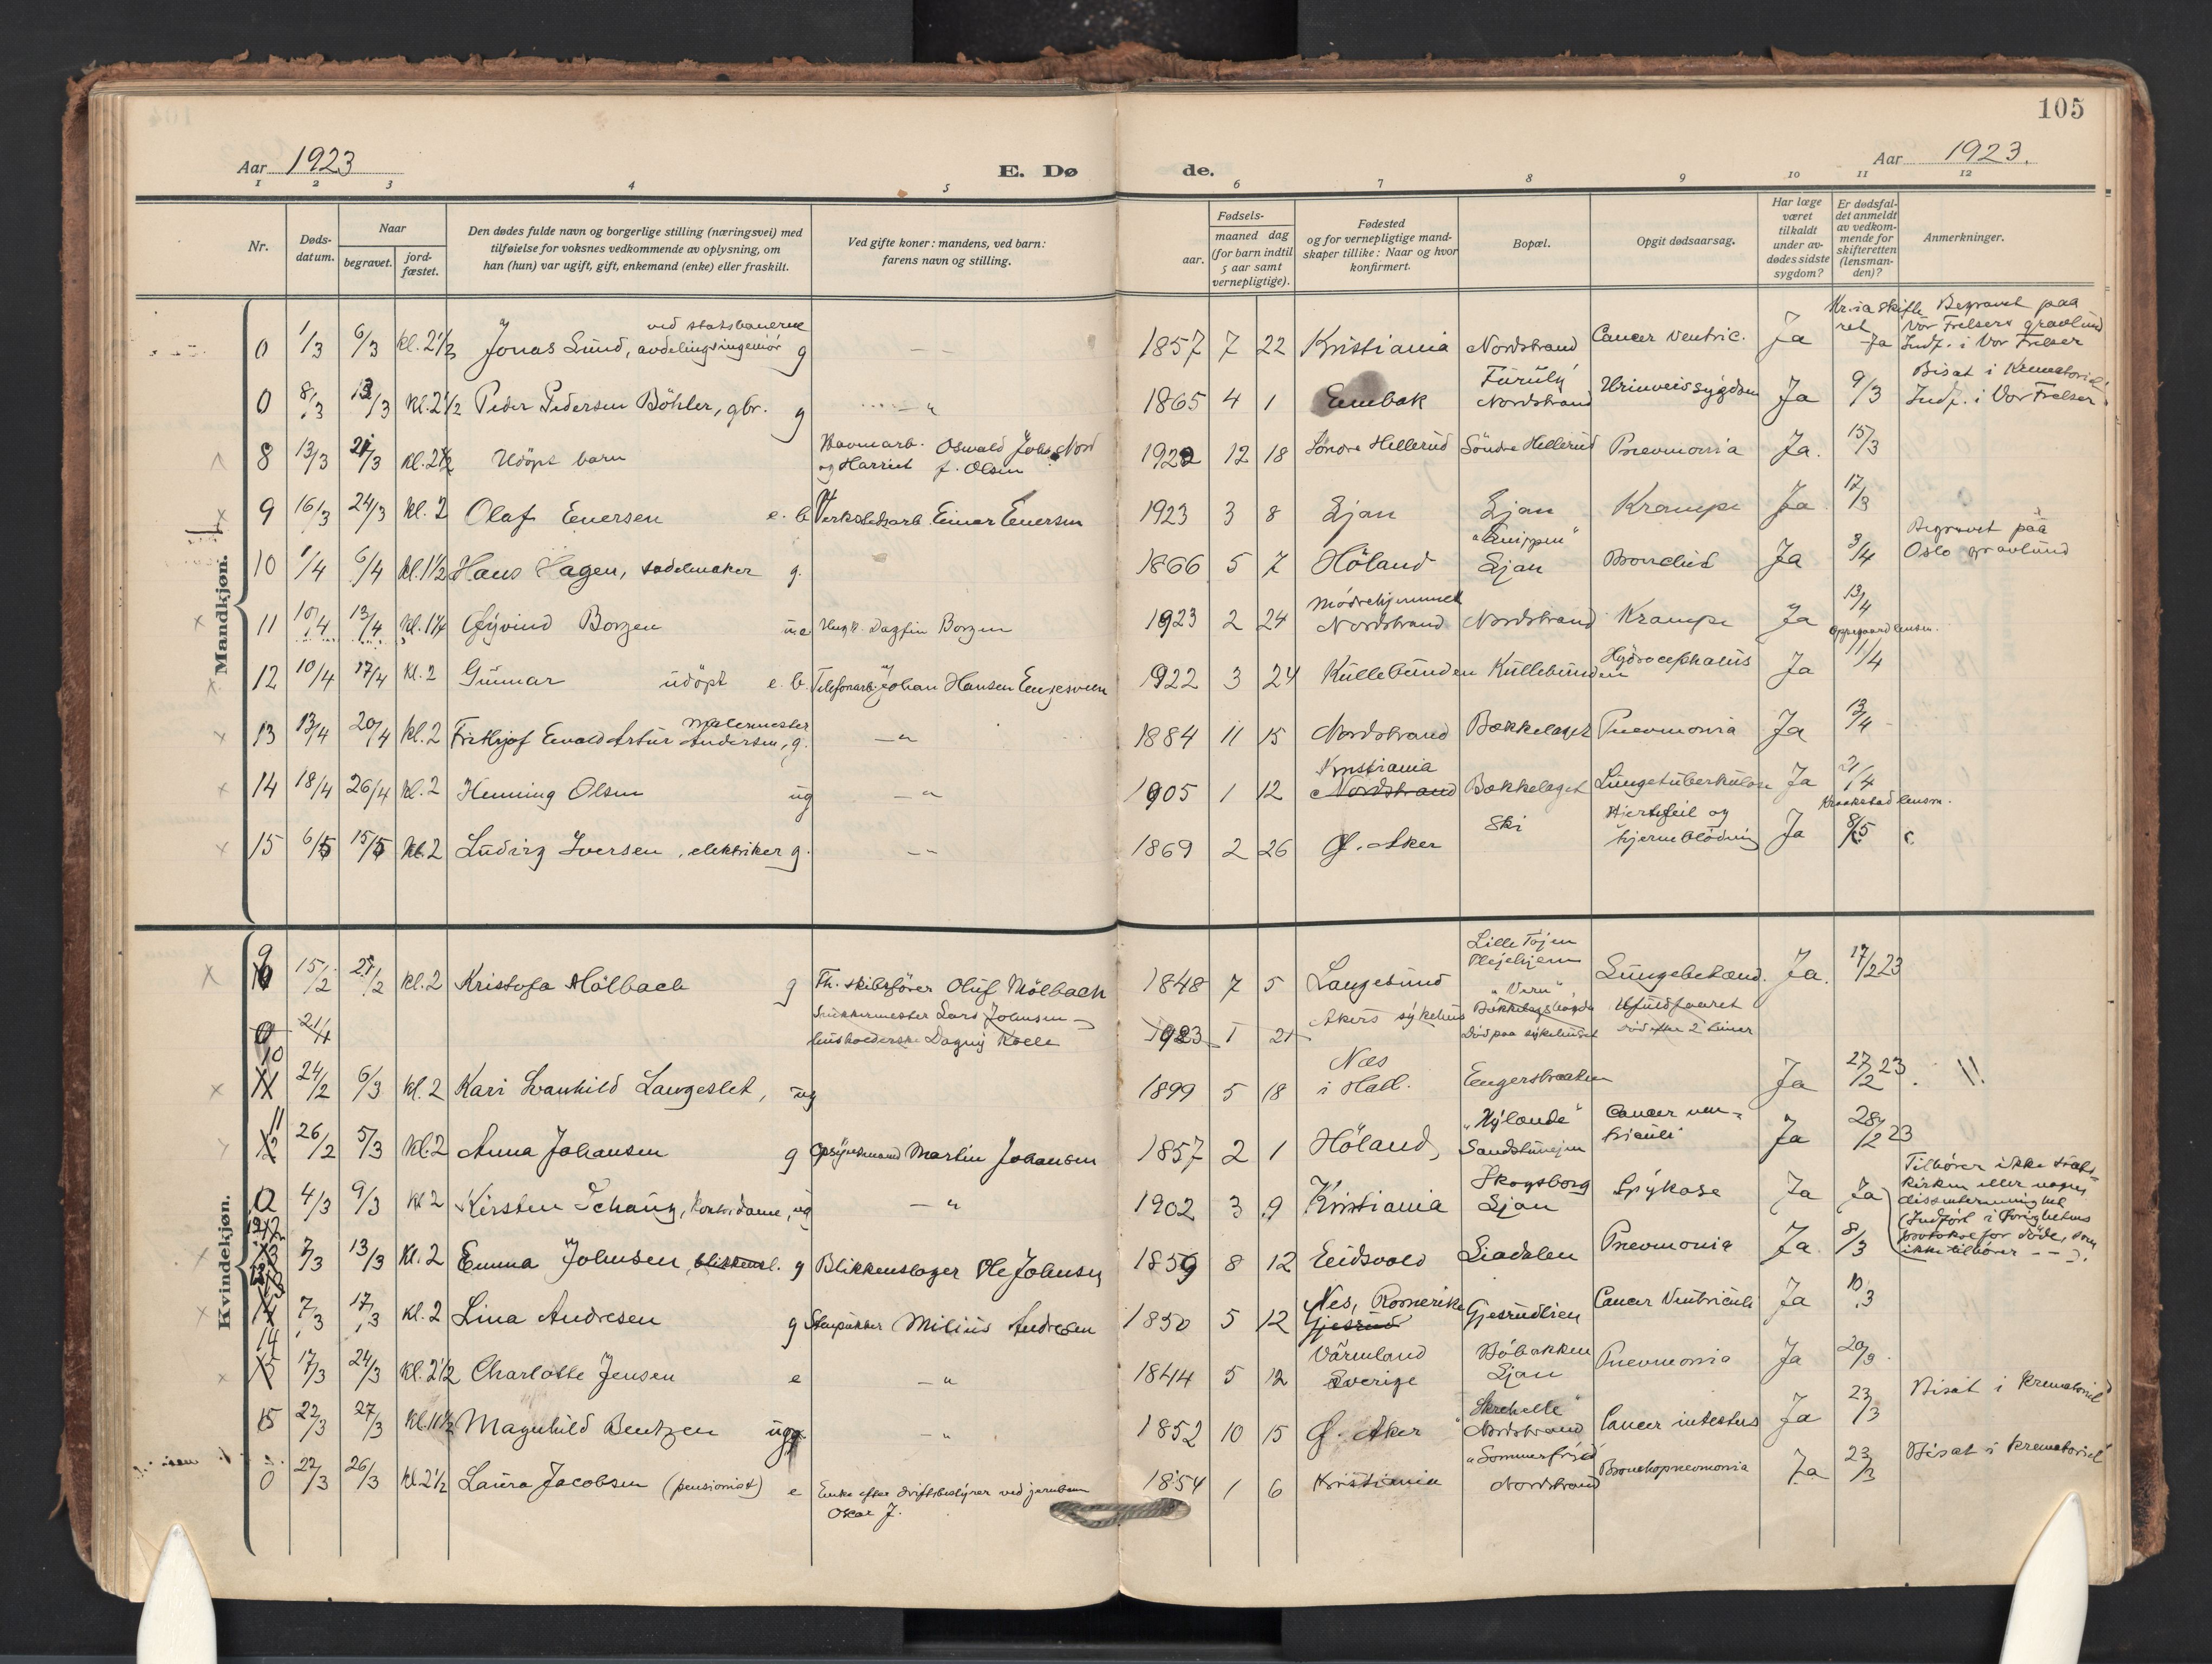 105
Aar 1923
E. Dø
de.
Aar 1923.
1 2 3 4 5 6 7 8 9 10 11 12
Nr.
Døds-
datum.
Naar
begravet.
jord-
fæstet.
Den dødes fulde navn og borgerlige stilling (næringsvei) med
tilføielse for voksnes vedkommende av oplysning, om
han (hun) var ugift, gift, enkemand (enke) eller fraskilt.
Ved gifte koner: mandens, ved barn:
farens navn og stilling.
Fødsels-
aar.
maaned dag
(for barn indtil
5 aar samt
vernepligtige).
Fødested
og for vernepligtige mand-
skaper tillike: Naar og hvor
konfirmert.
Bopæl.
Opgit dødsaarsag.
Har læge
været
tilkaldt
under av-
dødes sidste
sygdom?
Er dødsfal-
det anmeldt
av vedkom-
mende for
skifteretten
(lensman-
den)?
Anmerkninger.
Mandkjøn.
0 1/3 6/3 kl. 2 1/2 Jonas Lund, avdelingsingeniør ved statsbanerne g 1857 7 22 Kristiania Nordstrand Cancer ventric. Ja Kr.ia skifte ret Ja Begravet paa Vor Frelsers gravlund Indf. i Vor Frelser
0 8/3 13/3 kl. 2 1/2 Peder Pedersen Böhler, gbr. g — " 1865 4 1 Enebak Furuly Nordstrand Urinveissygdom Ja 9/3 Bisat i Krematoriet Indf. i Vor Frelser
8 13/3 21/3 kl. 2 1/2 Udöpt barn Oswald Johs. Nord og Harriet f. Olsen 1922 12 18 Söndre Hellerud Söndre Hellerud Pneumonia Ja. 15/3
9 16/3 24/3 kl. 2 Olaf Enersen e. b Verkstedsarb. Einar Enersen 1923 3 8 Ljan Ljan Krampe Ja 17/3
10 1/4 6/4 kl. 1 1/2 Hans Hagen, sadelmaker g. 1866 5 7 Höland Ljan Bronchit Ja 3/4 Begravet paa Oslo gravlund
11 10/4 13/4 Øyvind Borgen Dagfin Borgen 1923 2 24 Mödrehjemmet Nordstrand Nordstrand Krampe Ja 13/4
12 10/4 17/4 kl. 2 Gunnar udöpt e. b. Telefonarb. Johan Hansen Engesveen 1922 3 24 Kullebunden Kullebunden Hydrocephalus Ja Oppegaard lensm. 11/4
13 13/4 20/4 kl. 2 Frithjof Ewald Artur Andersen, Malermester g. — " 1884 11 15 Nordstrand Bækkelaget Pneumonia Ja 13/4
14 18/4 26/4 kl. 2 Henning Olsen ug — " 1905 1 12 Kristiania Nordstrand Bækkelaget Lungetuberkulose Ja 21/4
15 6/5 15/5 kl. 2 Ludvig Iversen, elektriker g. — " 1869 2 26 Ø. Aker Ski Hjertefeil og hjerneblödning Ja Kraakstad lensm. 8/5
Kvindekjøn.
9 15/2 21/2 kl. 2 Kristofa Mölbach g Fh. skibsförer Oluf Mölbach 1848 7 5 Langesund Lille Töjen Plejehjem Lungebetænd. Ja. 17/2 23
0 21/1 Snekkermester Lars Johnsen — husholderske Dagny 1923 1 21 Akers sykehus Död paa sykehuset Ufuldbaaret död efter 2 timer
10 24/2 6/3 kl. 2 Kari Svanhild Langeslet, ug 1899 5 18 Næs i Hall. Ja 27/2 23 . !!
11 26/2 5/3 kl. 2 Anna Johansen g Opsynsmand Martin Johansen 1857 2 1 Höland, "Nylænde" Sandstuvejen Cancer ven- triculi Ja 28/2 23
0 4/3 9/3 kl 2 Kirsten Schaug, kontordame, ug — " 1902 3 9 Kristiania Skogsborg Ljan Ja Ja Tilhører ikke stats- kirken eller nogen dissentermenighet (Indført i Øvrighetens protokol for döde, som ikke tilhører — —).
12 7/3 13/3 kl. 2 Emma Johnsen, blikkensl. g Blikkenslager Ole Johnsen 1859 8 12 Eidsvold Liadalen Pneumonia Ja. 8/3
13 7/3 17/3 kl. 2 Lina Andresen g Stenpukker Milius Andresen 1850 5 12 Nes, Romerike Gjesrud Gjesrudlien Cancer Ventriculi Ja 10/3
14 17/3 24/3 kl. 2 1/2 Charlotte Jensen e — " 1844 5 12 Värmland Sverige Ljan Pneumonia Ja 20/3
15 22/3 27/3 kl. 11 1/2 Magnhild Bentzen ug — " 1852 10 15 Ø. Aker Nordstrand Cancer intestus Ja 23/3 Bisat i krematoriet
0 22/3 26/3 kl 2 1/2 Laura Jacobsen (pensionist) e Enke efter driftsbestyrer ved jernbanen Oscar J. 1854 1 6 Kristiania "Sommerfryd" Nordstrand Bronchopneumonia Ja 23/3 Bisat i krematoriet